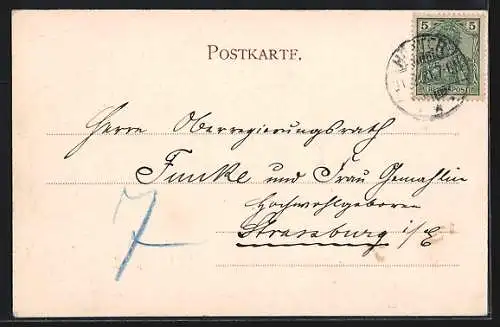 5 5
POSTKARTE.
REICHSPOST
Herrn Oberregierungsrath
Funke und Frau Gemahlin
Hochwohlgeboren
Strassburg i/E
7